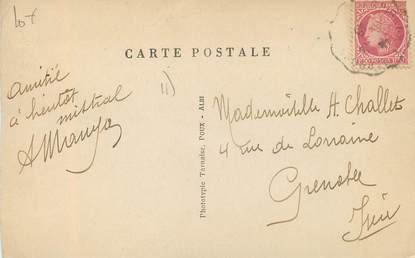 lot
CARTE POSTALE
Amitié
à bientôt
mistral
11)
Phototypie Tarnaise, POUX - ALBI
Mademoiselle H. Challet
4 rue de Lorraine
Grenoble
Isère